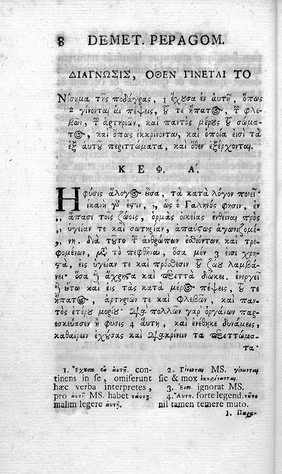 8 DEMET. PEPAGOM.
ΔΙΑΓΝΩΣΙΣ, ΟΘΕΝ ΓΙΝΕΤΑΙ ΤΟ
Νόσημα τῆς ποδάγρας, 1 ἔχουσα ἐν αὐτῇ, ὅπως
2 γίνονται αἱ πέψεις, τοῦ τε ἥπατος, τῶν φλε-
βῶν, τῶν ἀρτηριῶν, καὶ παντὸς μέρους τοῦ σώμα-
τος, καὶ ὅπως ἐκκρίνονται, καὶ ὁποῖά εἰσι τὰ
ἐξ αὐτοῦ περιττώματα, καὶ ὅθεν ἐξέρχονται.
ΚΕΦ. Α΄.
Η φύσις ἄλογος οὖσα, τὰ κατὰ λόγον ποιεῖ
ὥς ὁ Γαληνός φησιν, ἐν
„ ἅπασι τοῖς ζώοις, ὁρμὰς οἰκείας πρὸς
„ ὑγείαν τε καὶ σωτηρίαν, ἀπαύστως ἀγωνιζομέ-
„ νη, διὰ τοῦτο τῶν ἀνθρώπων ἐσθιόντων καὶ τρε-
φομένων, μετὰ τὸ πεφθῆναι, ὅσα μὲν 3 εἰσι χρη-
στὰ, εἰς ὑγείαν τε καὶ πρόσθεσιν τοῦ ζώου λαμβά-
νει· ὅσα δὲ ἄχρηστα καὶ περιττὰ διώκει, ἐνεργεῖ
δὲ οὕτω καὶ εἰς τὰς κατὰ μέρος πέψεις, τοῦ τε
ἥπατος, ἀρτηριῶν τε καὶ φλεβῶν, καὶ παν-
τὸς ἑτέρου μορίου· διὰ πολλῶν γὰρ ὀργάνων παρε-
σκεύασεν ἡ φύσις 4 αὐτὴ, καὶ ἐνέθηκε δυνάμεις,
καθαίρειν ἐχούσας καὶ διακρίνειν τὰ περιττώμα-
τα·
1. Ἔχουσα ἐν αὐτῇ. con-
tinens in se, omiserunt
hæc verba interpretes,
pro αὐτῇ MS. habet ταύτῃ.
malim legere αὑτῇ.
2. Γίνωνται MS. γίνονται
sic & mox ἐκκρίνωνται.
3. Εἰσι ignorat MS.
4. Αὐτὴ. forte legend. τοῦτο
nil tamen temere muto.
1. Παρε-